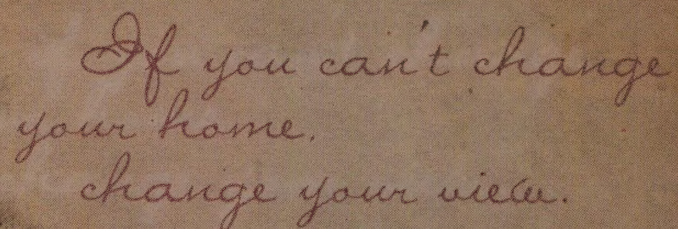 If you can't change
your home.
change your view.